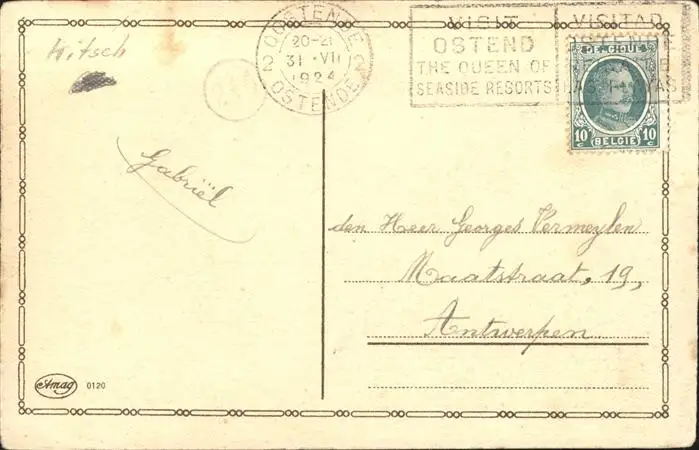 Kitsch
OOSTENDE
20-21
2 31 · VII 2
1924
OSTENDE
VISIT
OSTEND
THE QUEEN OF
SEASIDE RESORTS
VISITAD
OSTENDE
LAS PLAYAS
BELGIQUE
10 c BELGIE 10 c
Gabriël
den Heer Georges Vermeylen
Maatstraat, 19,
Antwerpen
Amag 0120